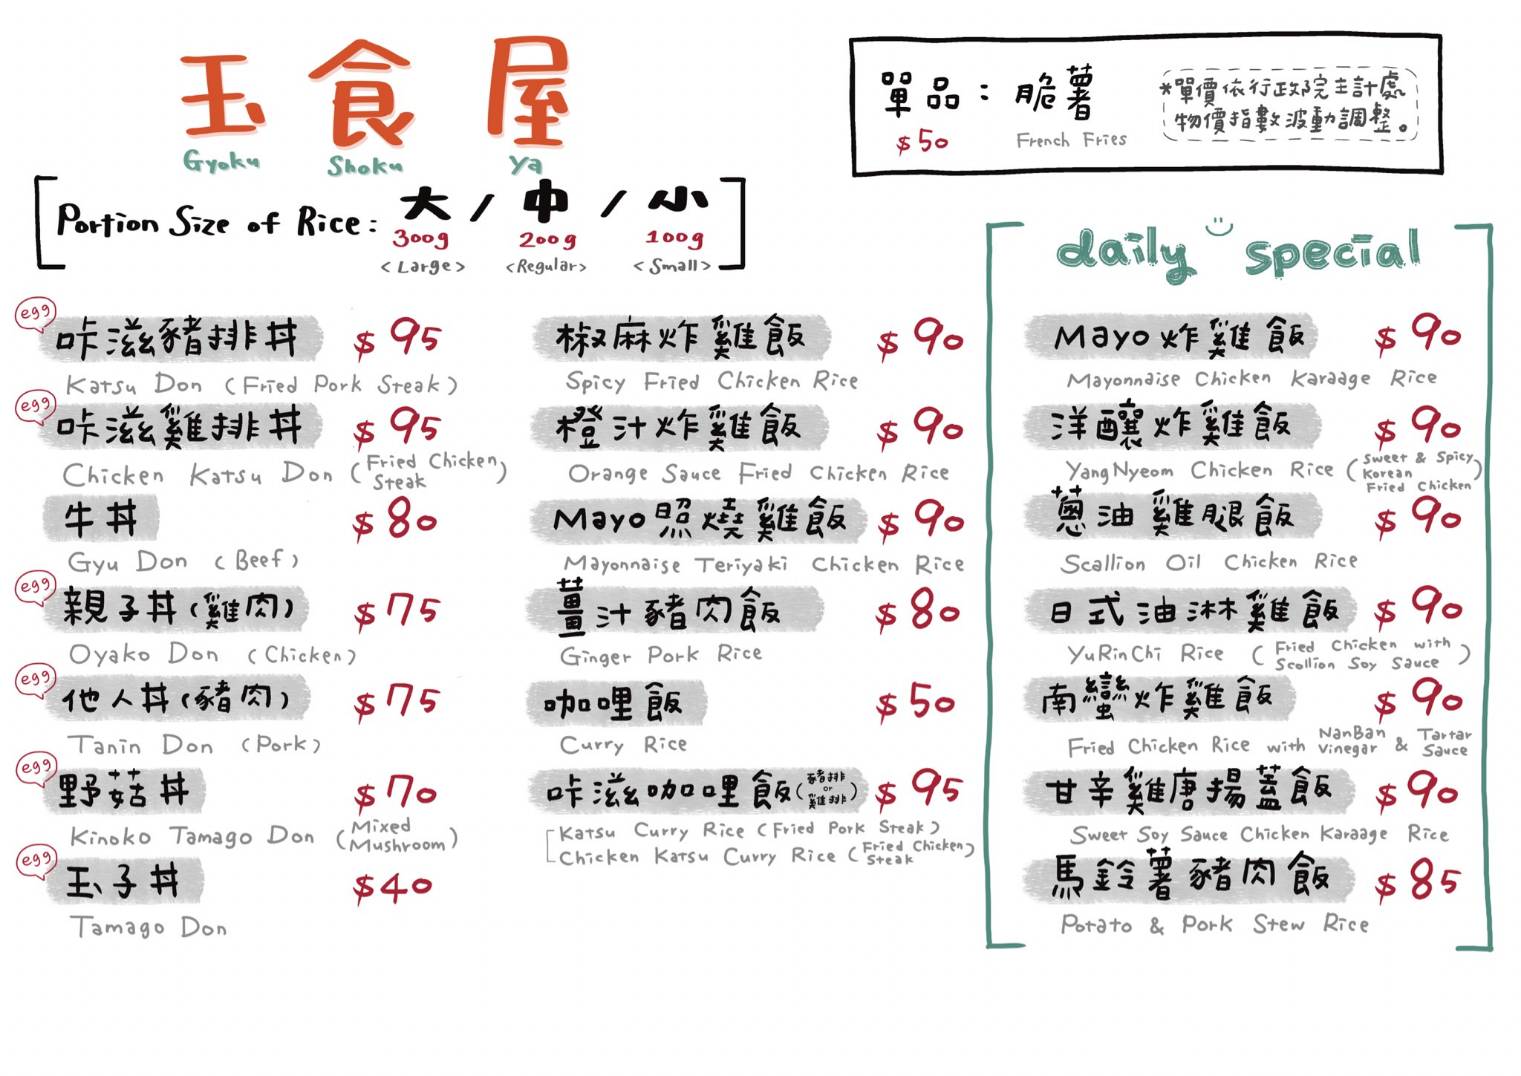 玉食屋
Gyoku Shoku Ya
Portion Size of Rice: 大 / 中 / 小
300g 200g 100g
<Large> <Regular> <Small>
單品：脆薯
$50 French Fries
*單價依行政院主計處
物價指數波動調整。
egg
咔滋豬排丼 $95
Katsu Don (Fried Pork Steak)
egg
咔滋雞排丼 $95
Chicken Katsu Don (Fried Chicken Steak)
牛丼 $80
Gyu Don (Beef)
egg
親子丼(雞肉) $75
Oyako Don (Chicken)
egg
他人丼(豬肉) $75
Tanin Don (Pork)
egg
野菇丼 $70
Kinoko Tamago Don (Mixed Mushroom)
egg
玉子丼 $40
Tamago Don
椒麻炸雞飯 $90
Spicy Fried Chicken Rice
橙汁炸雞飯 $90
Orange Sauce Fried Chicken Rice
Mayo照燒雞飯 $90
Mayonnaise Teriyaki Chicken Rice
薑汁豬肉飯 $80
Ginger Pork Rice
咖哩飯 $50
Curry Rice
咔滋咖哩飯(豬排 or 雞排) $95
Katsu Curry Rice (Fried Pork Steak)
Chicken Katsu Curry Rice (Fried Chicken Steak)
daily special
Mayo炸雞飯 $90
Mayonnaise Chicken Karaage Rice
洋釀炸雞飯 $90
YangNyeom Chicken Rice (Sweet & Spicy Korean Fried Chicken)
蔥油雞腿飯 $90
Scallion Oil Chicken Rice
日式油淋雞飯 $90
YuRinChi Rice (Fried Chicken with Scollion Soy Sauce)
南蠻炸雞飯 $90
Fried Chicken Rice with NanBan Vinegar & Tartar Sauce
甘辛雞唐揚蓋飯 $90
Sweet Soy Sauce Chicken Karaage Rice
馬鈴薯豬肉飯 $85
Potato & Pork Stew Rice